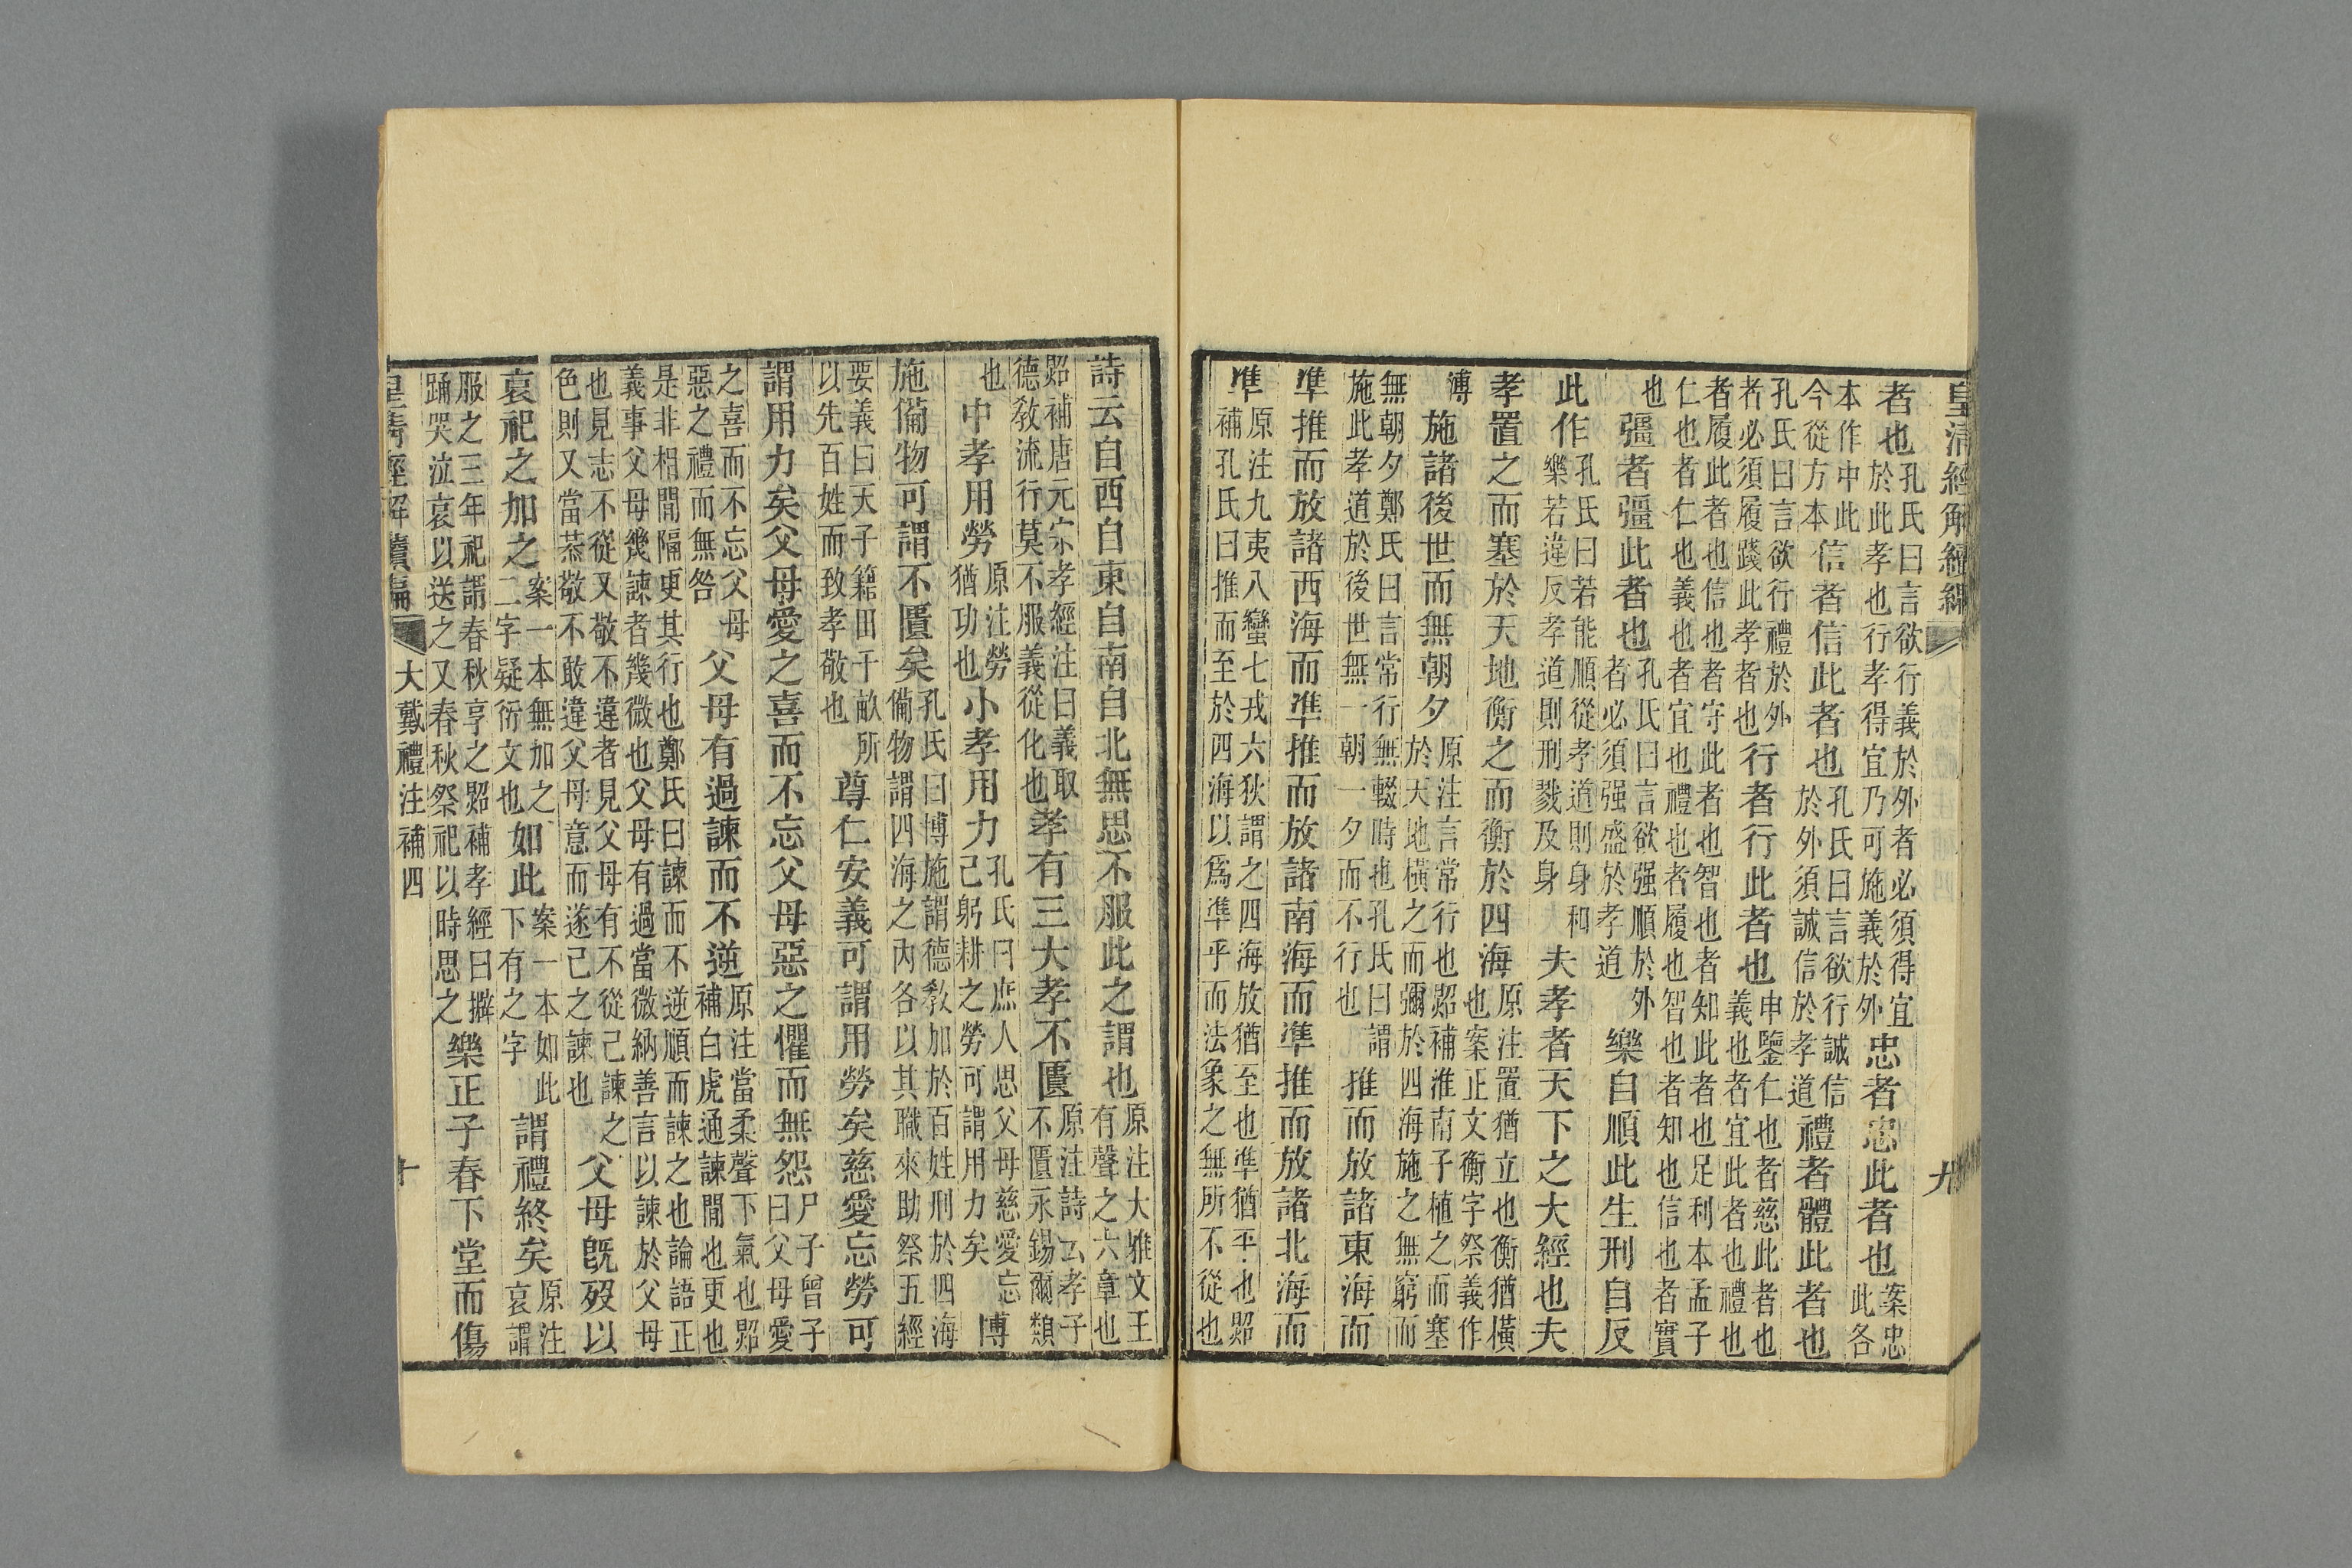 皇清經解續編　九
者也孔氏曰言欲行義於外者必須得宜於此孝也行孝得宜乃可施義於外忠者忠此者也案忠此各
本作中此今從方本信者信此者也孔氏曰言欲行誠信於外須誠信於孝道禮者體此者也
孔氏曰言欲行禮於外者必須履踐此孝者也行者行此者也申鑒仁也者慈此者也義也者宜此者也禮也
者履此者也信也者守此者也智也者知此者也足利本孟子仁也者仁也義也者宜也禮也者履也智也者知也信也者實
也彊者彊此者也孔氏曰言欲强順於外者必須强盛於孝道樂自順此生刑自反
此作孔氏曰若能順從孝道則身和樂若違反孝道則刑戮及身夫孝者天下之大經也夫
孝置之而塞於天地衡之而衡於四海原注置猶立也衡猶橫也案正文衡字祭義作
溥施諸後世而無朝夕原注言常行也照補淮南子植之而塞於天地橫之而彌於四海施之無窮而
無朝夕鄭氏曰言常行無輟時也孔氏曰謂施此孝道於後世無一朝一夕而不行也推而放諸東海而
準推而放諸西海而準推而放諸南海而準推而放諸北海而
準原注九夷八蠻七戎六狄謂之四海放猶至也準猶平也照補孔氏曰推而至於四海以爲準乎而法象之無所不從也
詩云自西自東自南自北無思不服此之謂也原注大雅文王有聲之六章也
照補唐元宗孝經注曰義取德敎流行莫不服義從化也孝有三大孝不匱原注詩云孝子不匱永錫爾類
也中孝用勞原注勞猶功也小孝用力孔氏曰庶人思父母慈愛忘己躬耕之勞可謂用力矣博
施備物可謂不匱矣孔氏曰博施謂德敎加於百姓刑於四海備物謂四海之內各以其職來助祭五經
要義曰天子籍田千畝所以先百姓而致孝敬也尊仁安義可謂用勞矣慈愛忘勞可
謂用力矣父母愛之喜而不忘父母惡之懼而無怨尸子曾子曰父母愛
之喜而不忘父母惡之禮而無咎父母有過諫而不逆原注當柔聲下氣也照補白虎通諫閒也更也
是非相閒隔更其行也鄭氏曰諫而不逆順而諫之也論語正義事父母幾諫者幾微也父母有過當微納善言以諫於父母
也見志不從又敬不違者見父母有不從己諫之色則又當恭敬不敢違父母意而遂己之諫也父母旣歿以
哀祀之加之案一本無加之二字疑衍文也如此案一本如此下有之字謂禮終矣原注哀謂
服之三年祀謂春秋享之照補孝經曰擗踊哭泣哀以送之又春秋祭祀以時思之樂正子春下堂而傷
皇清經解續編　大戴禮注補四　十